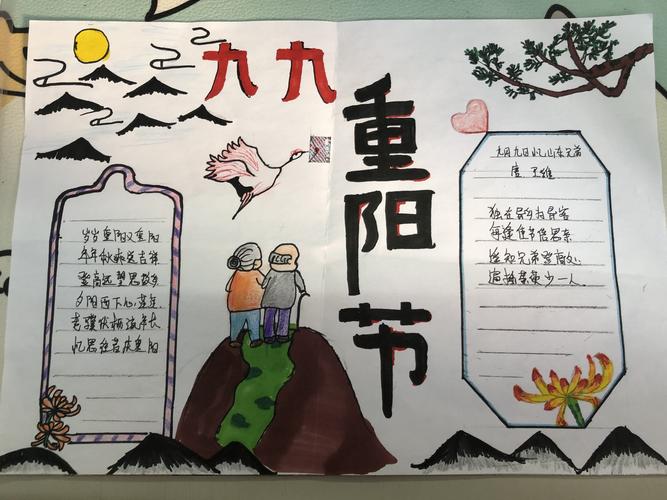 九九
重阳节
岁岁重阳又重阳
年年秋来送吉祥
登高远望思故乡
夕阳西下心
老骥伏枥流年长
忆思往昔庆重阳
九月九日忆山东兄弟
唐 王维
独在异乡为异客
每逢佳节倍思亲
遥知兄弟登高处
遍插茱萸少一人。